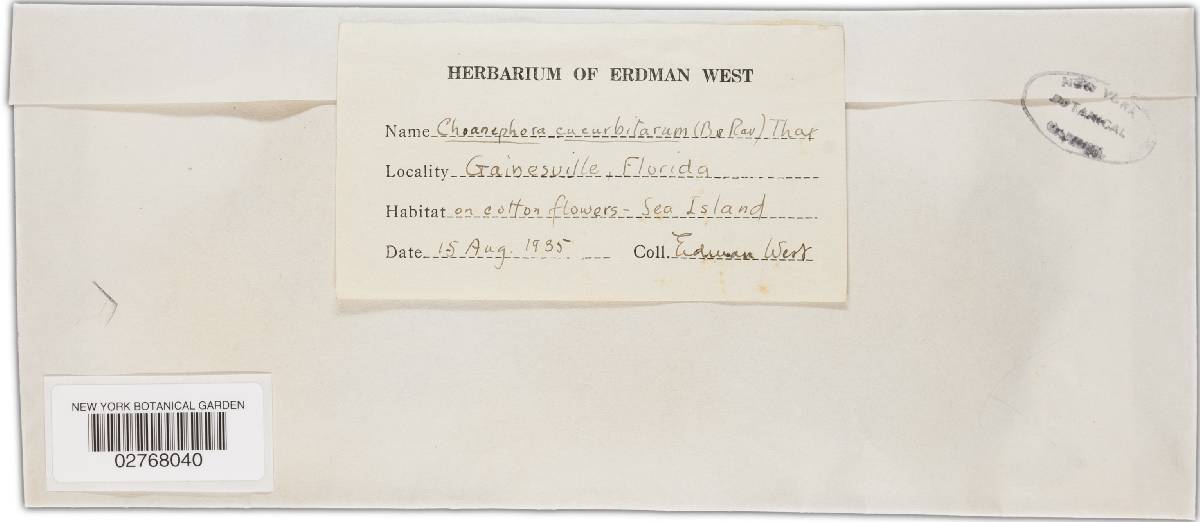 HERBARIUM OF ERDMAN WEST
Name Choanephora cucurbitarum (B & Rav) Thax
Locality Gainesville, Florida
Habitat on cotton flowers - Sea Island
Date 15 Aug. 1935 Coll. Erdman West
NEW YORK
BOTANICAL
GARDEN
NEW YORK BOTANICAL GARDEN
02768040